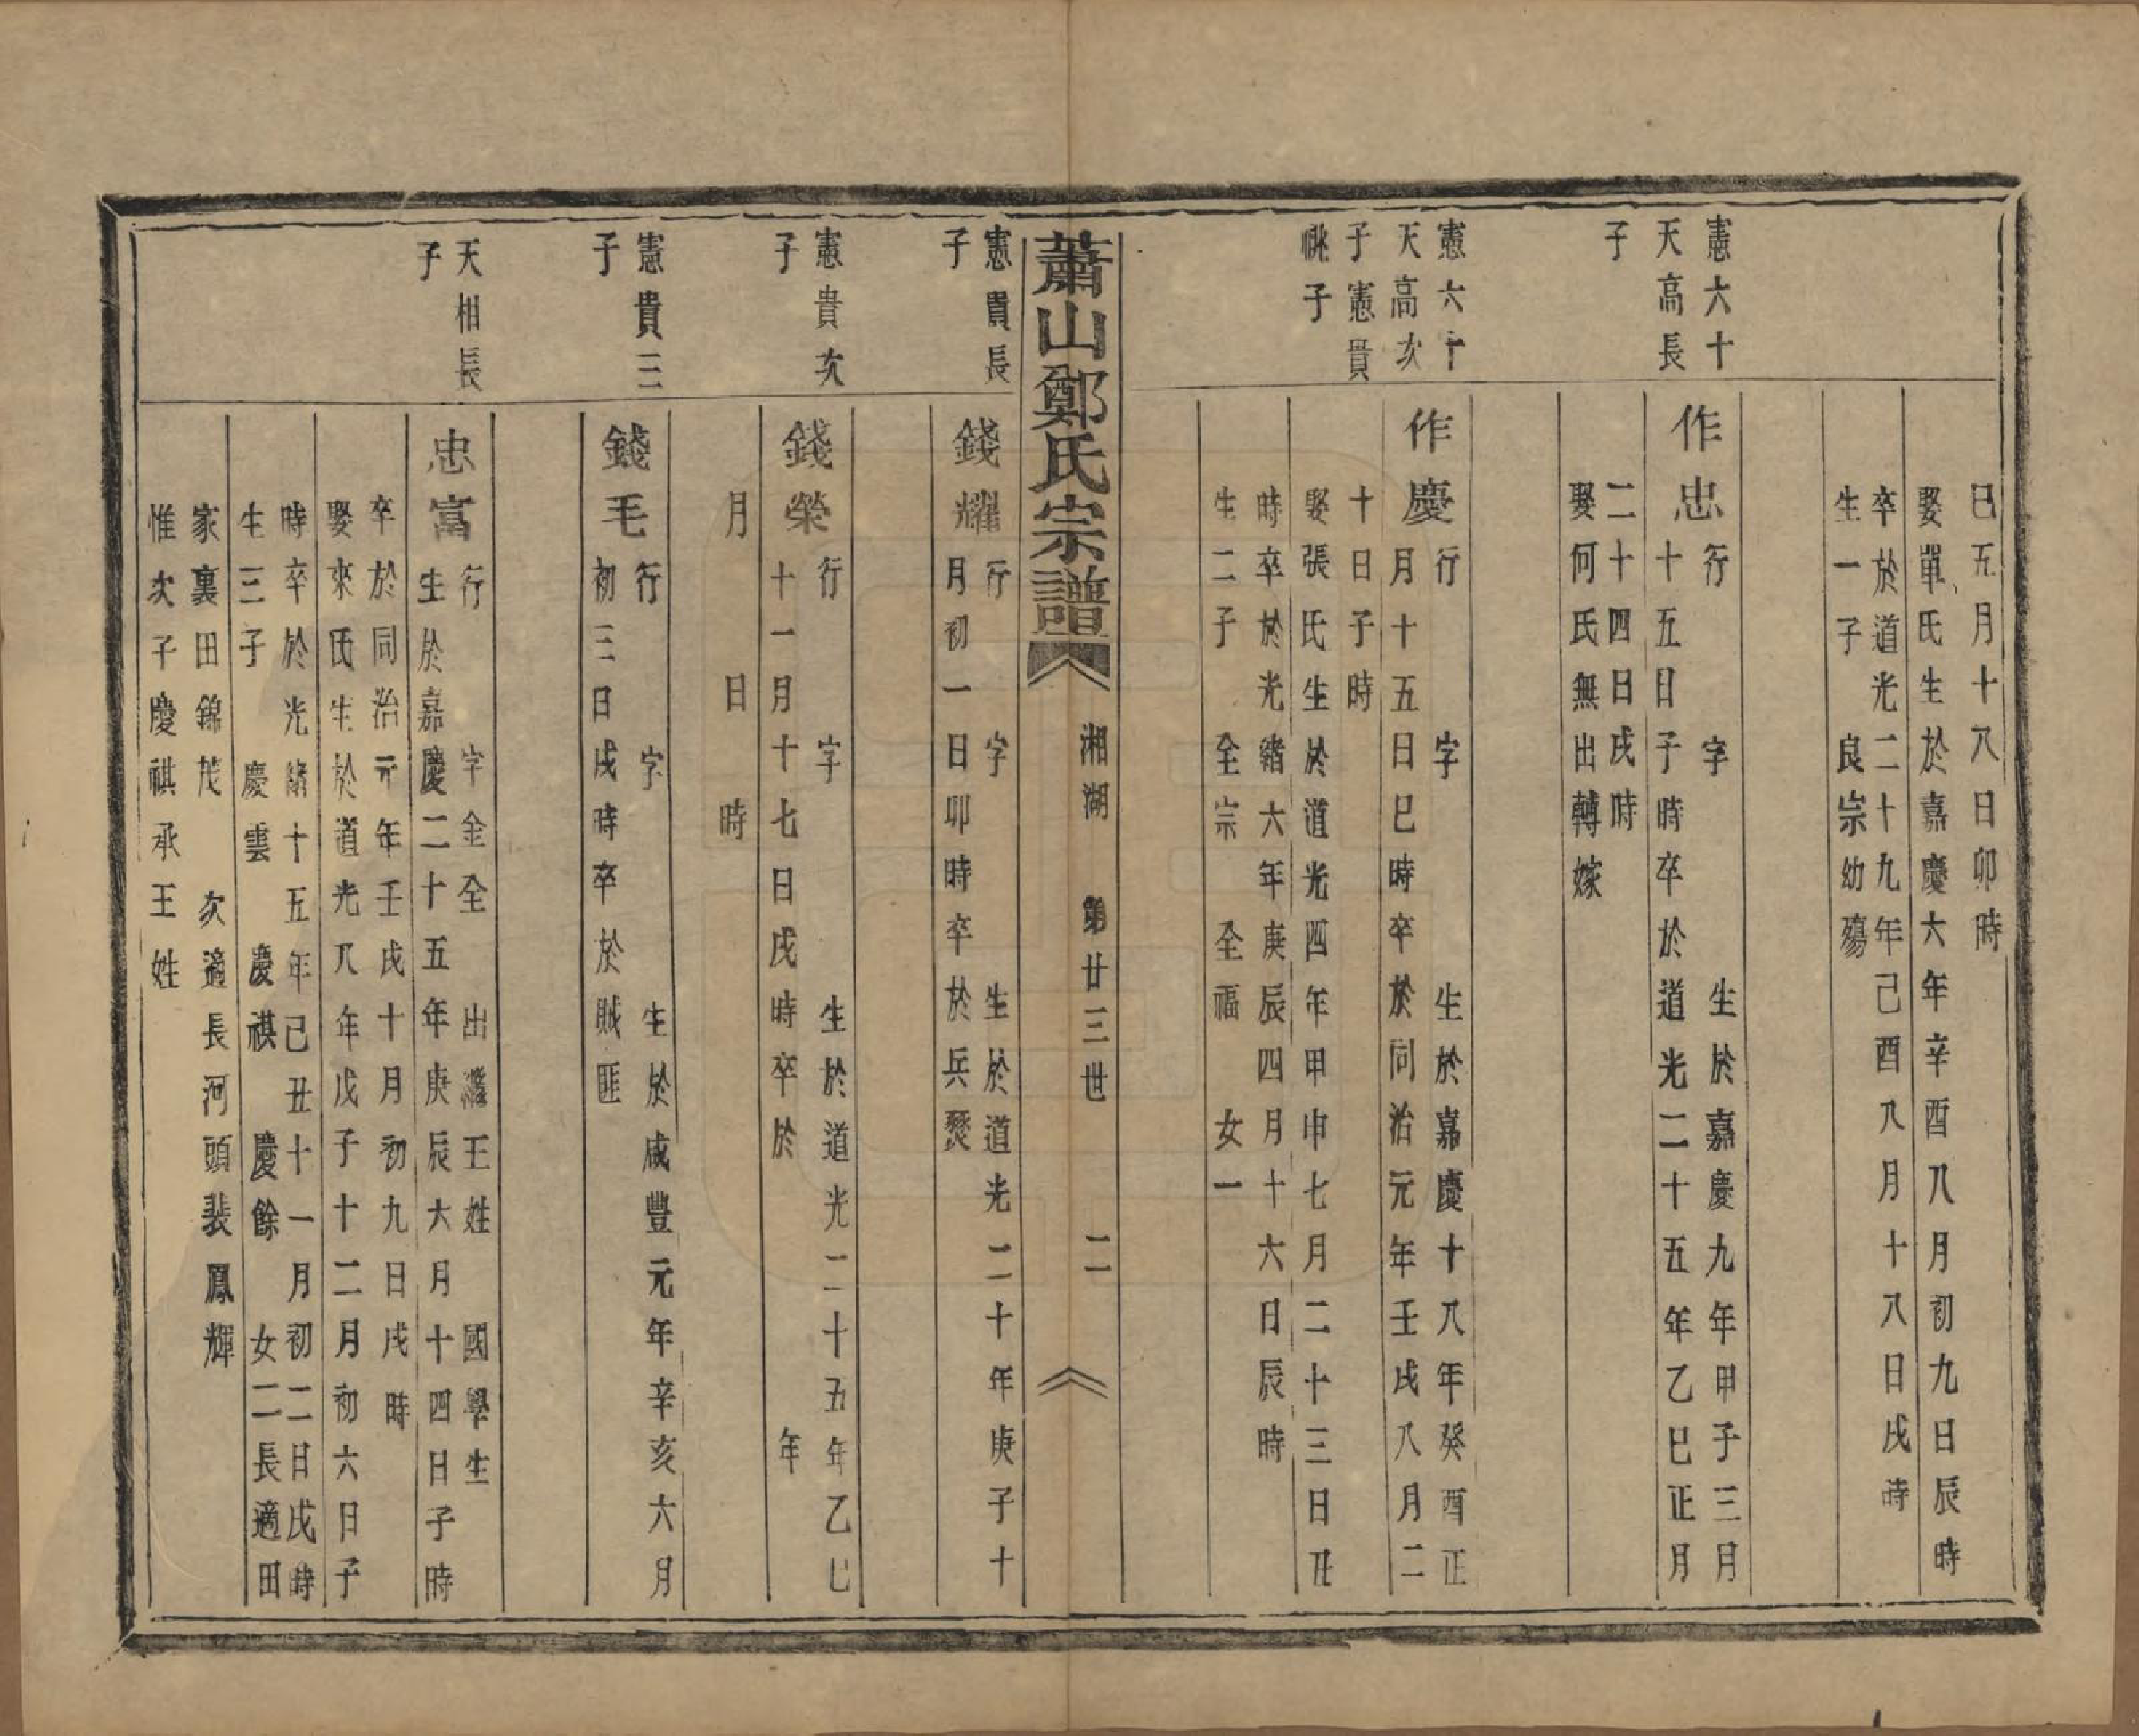 巳五月十八日卯時
娶單氏生於嘉慶六年辛酉八月初九日辰時
卒於道光二十九年己酉八月十八日戌時
生一子　良宗幼殤
憲六十
天高長
子
作忠
行　字　生於嘉慶九年甲子三月
十五日子時卒於道光二十五年乙巳正月
二十四日戌時
娶何氏無出轉嫁
憲六十
天高次
子憲貴
祧子
作慶
行　字　生於嘉慶十八年癸酉正
月十五日巳時卒於同治元年壬戌八月二
十日子時
娶張氏生於道光四年甲申七月二十三日丑
時卒於光緒六年庚辰四月十六日辰時
生二子　全宗　全福　女一
蕭山鄭氏宗譜
湘湖　第廿三世　二
憲貴長
子
錢耀
行　字　生於道光二十年庚子十
月初一日卯時卒於兵燹
憲貴次
子
錢榮
行　字　生於道光二十五年乙巳
十一月十七日戌時卒於　年
月　日　時
憲貴三
子
錢毛
行　字　生於咸豐元年辛亥六月
初三日戌時卒於賊匪
天相長
子
忠富
行　字金全　出繼王姓　國學生
生於嘉慶二十五年庚辰六月十四日子時
卒於同治元年壬戌十月初九日戌時
娶來氏生於道光八年戊子十二月初六日子
時卒於光緒十五年己丑十一月初二日戌時
生三子　慶雲　慶祺　慶餘　女二長適田
家裏田錦茂　次適長河頭裴鳳輝
惟次子慶祺承王姓